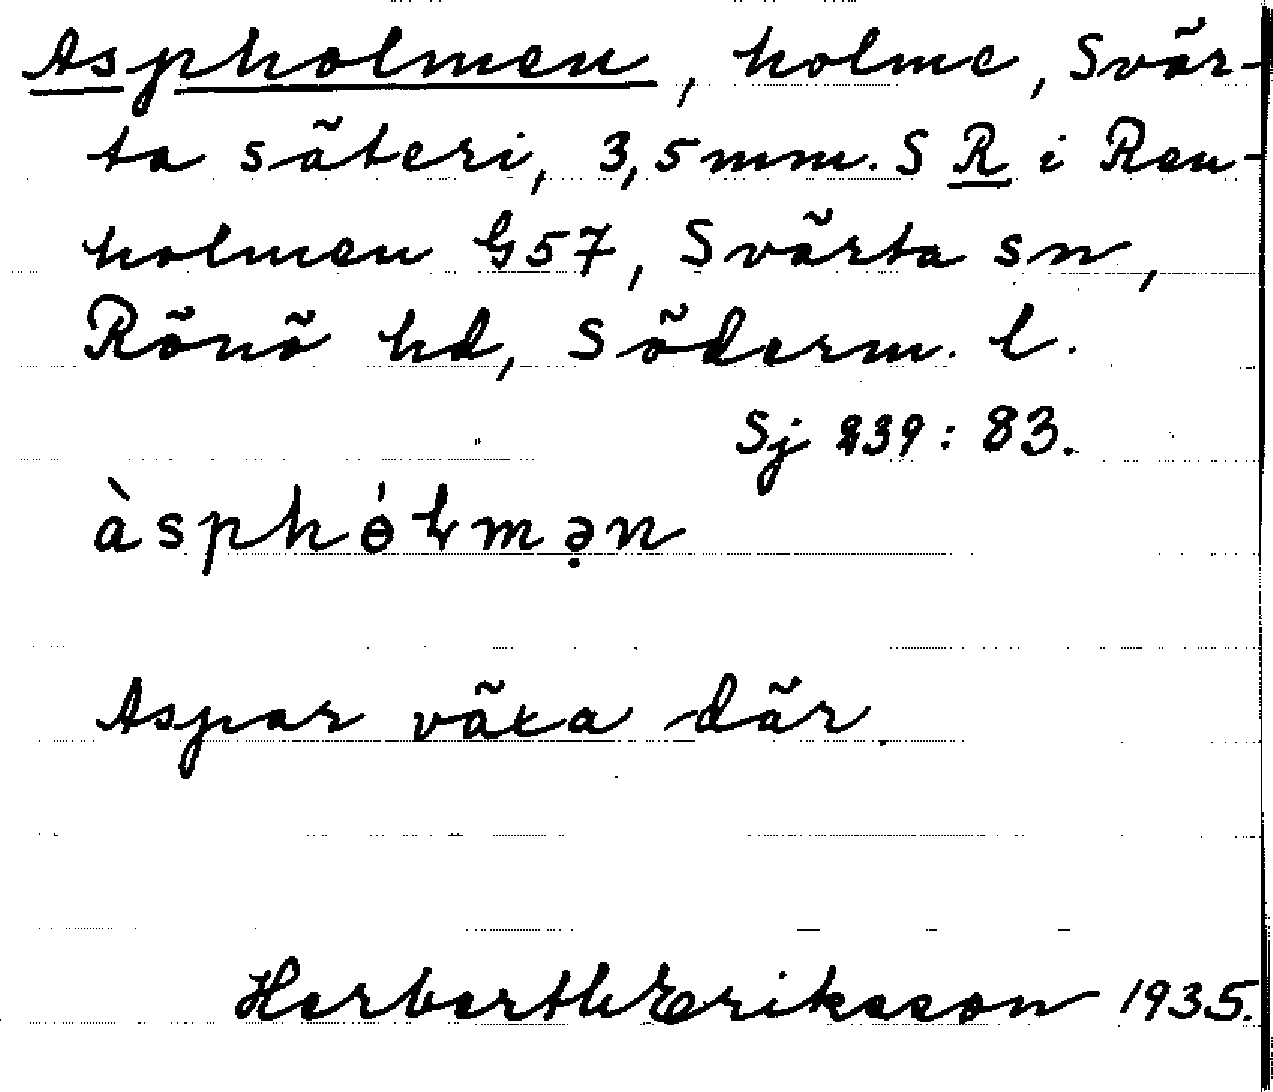 Aspholmen, holme, Svär-
ta säteri, 3,5 mm. S R i Ren-
holmen G57, Svärta sn,
Rönö hd, Söderm. l.
Sj 239: 83.
àsphɵ́ɫmə̣n
Aspar växa där.
Herbert Eriksson 1935.